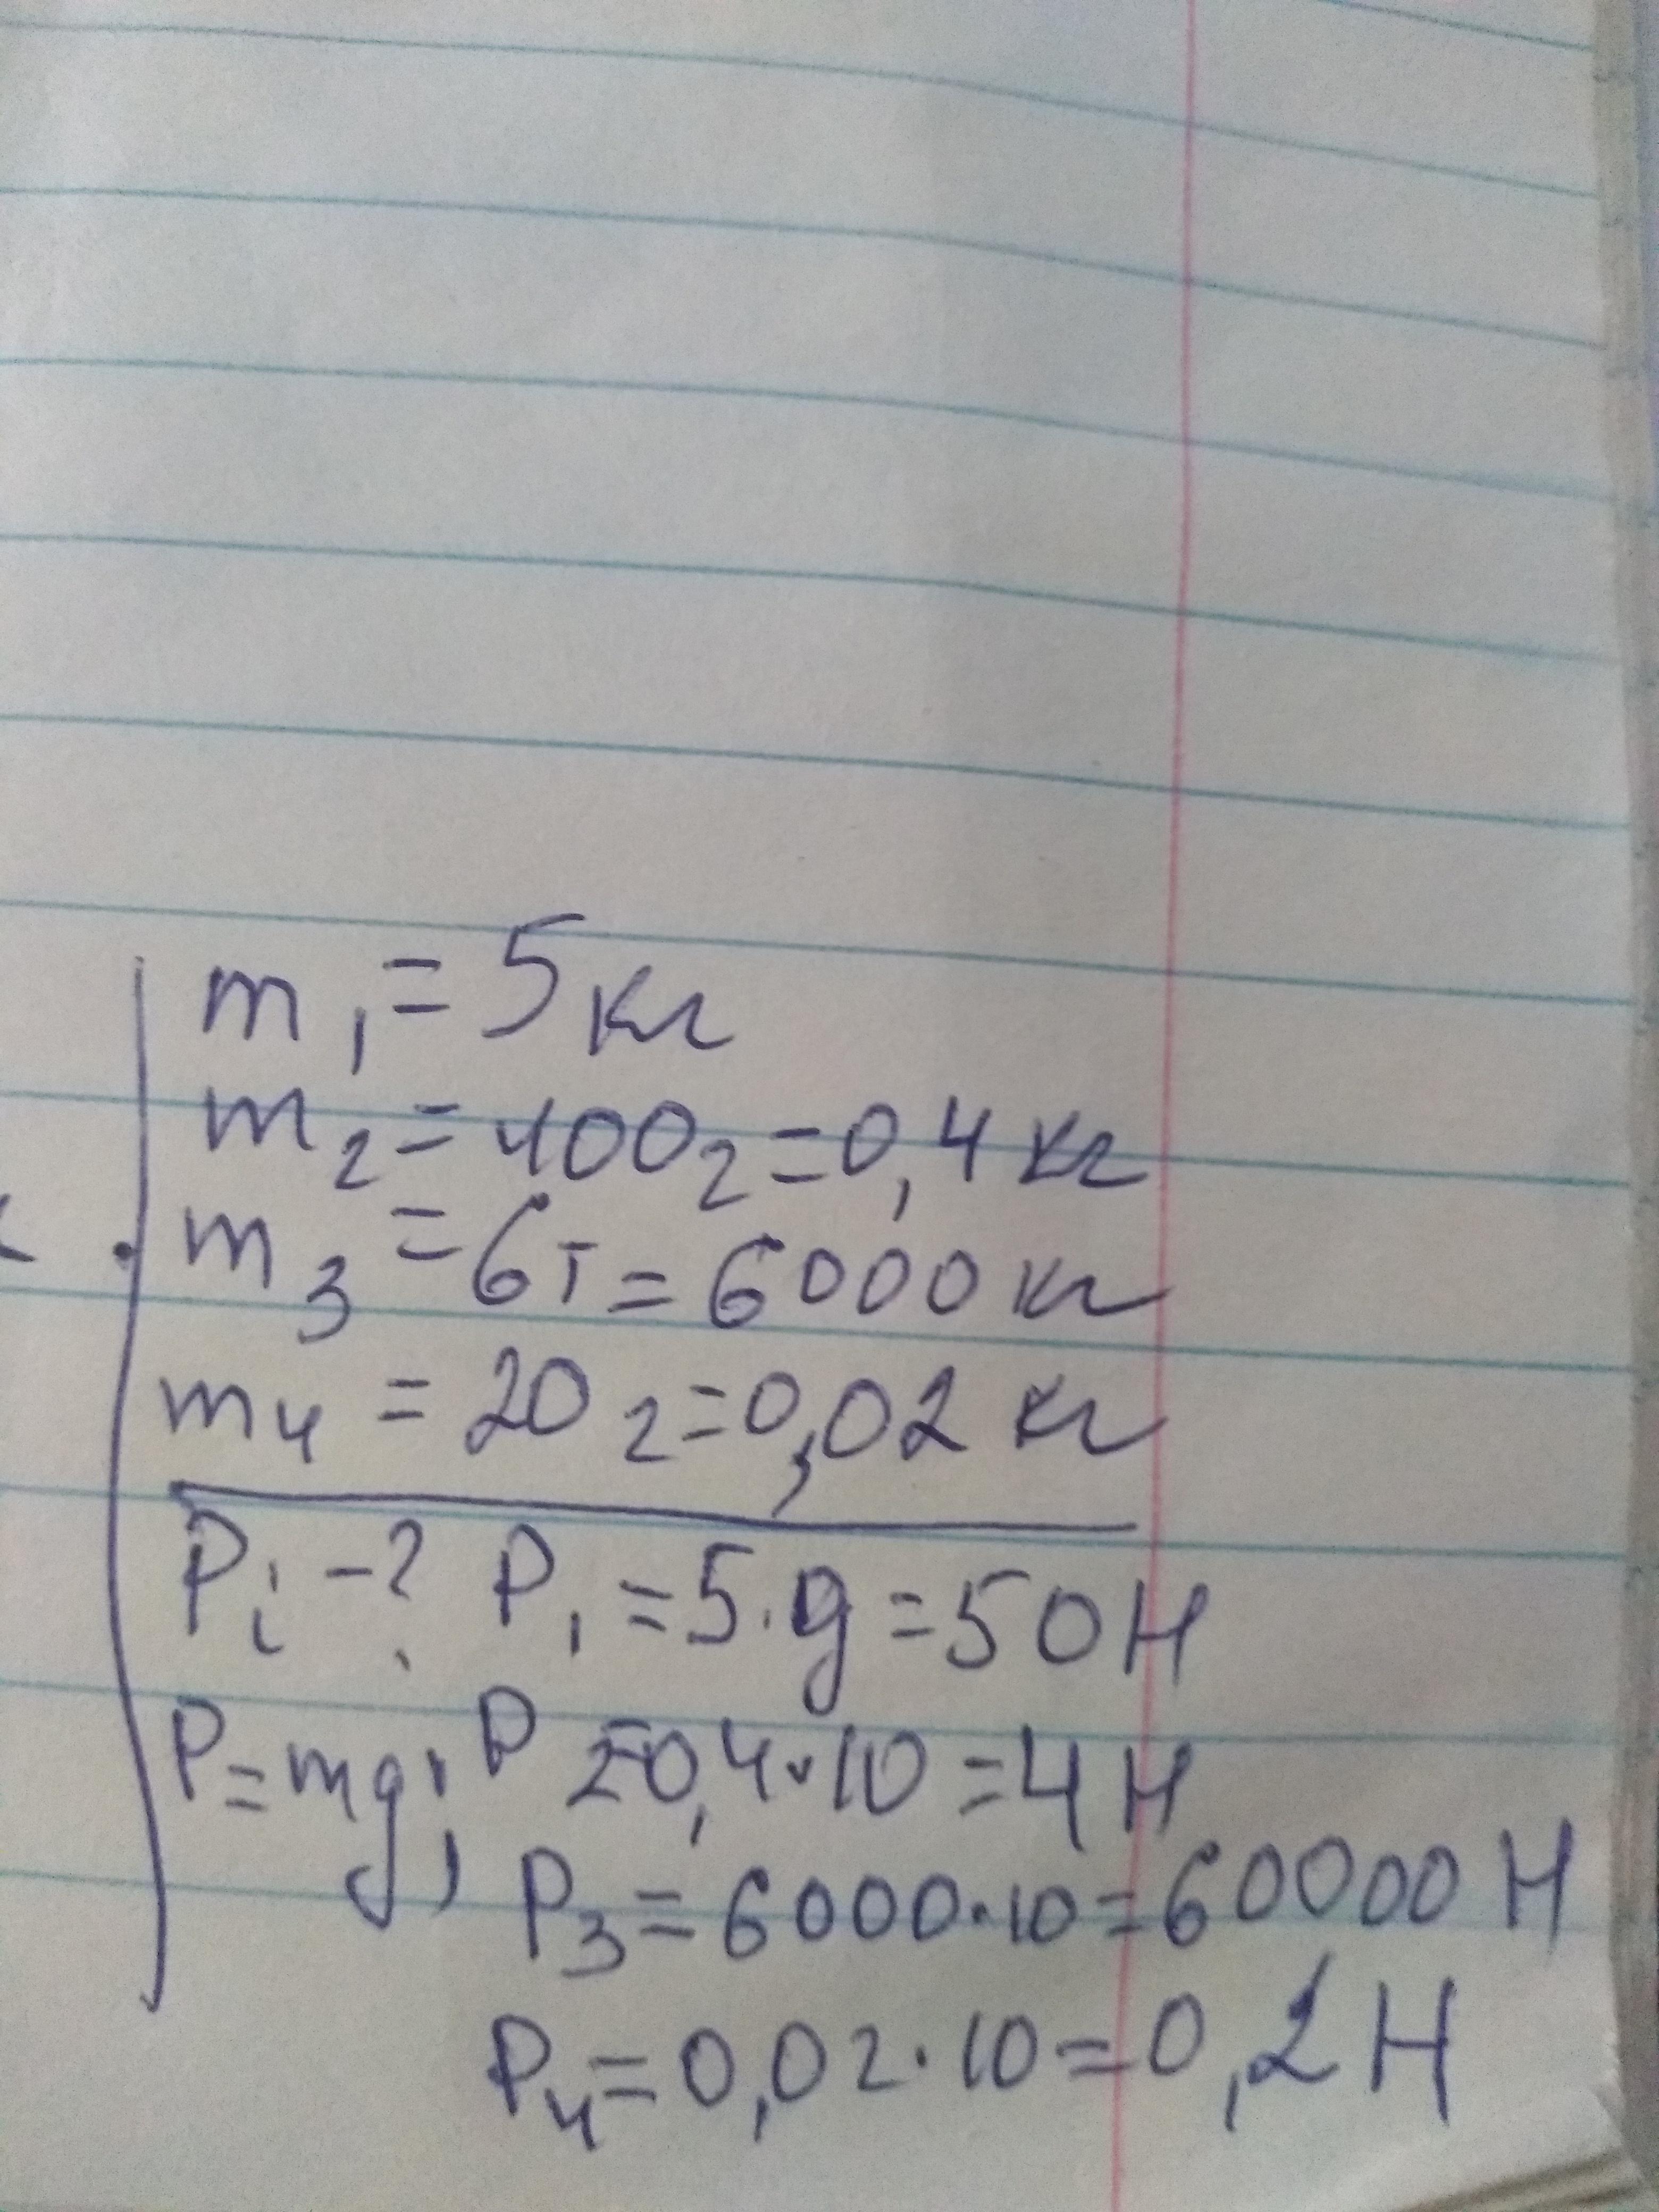 m₁ = 5 кг
m₂ = 400 г = 0,4 кг
m₃ = 6 т = 6000 кг
m₄ = 20 г = 0,02 кг
Pᵢ - ? P₁ = 5 · g = 50 Н
P = mg; P 2 = 0,4 · 10 = 4 Н
P₃ = 6000 · 10 = 60000 Н
P₄ = 0,02 · 10 = 0,2 Н